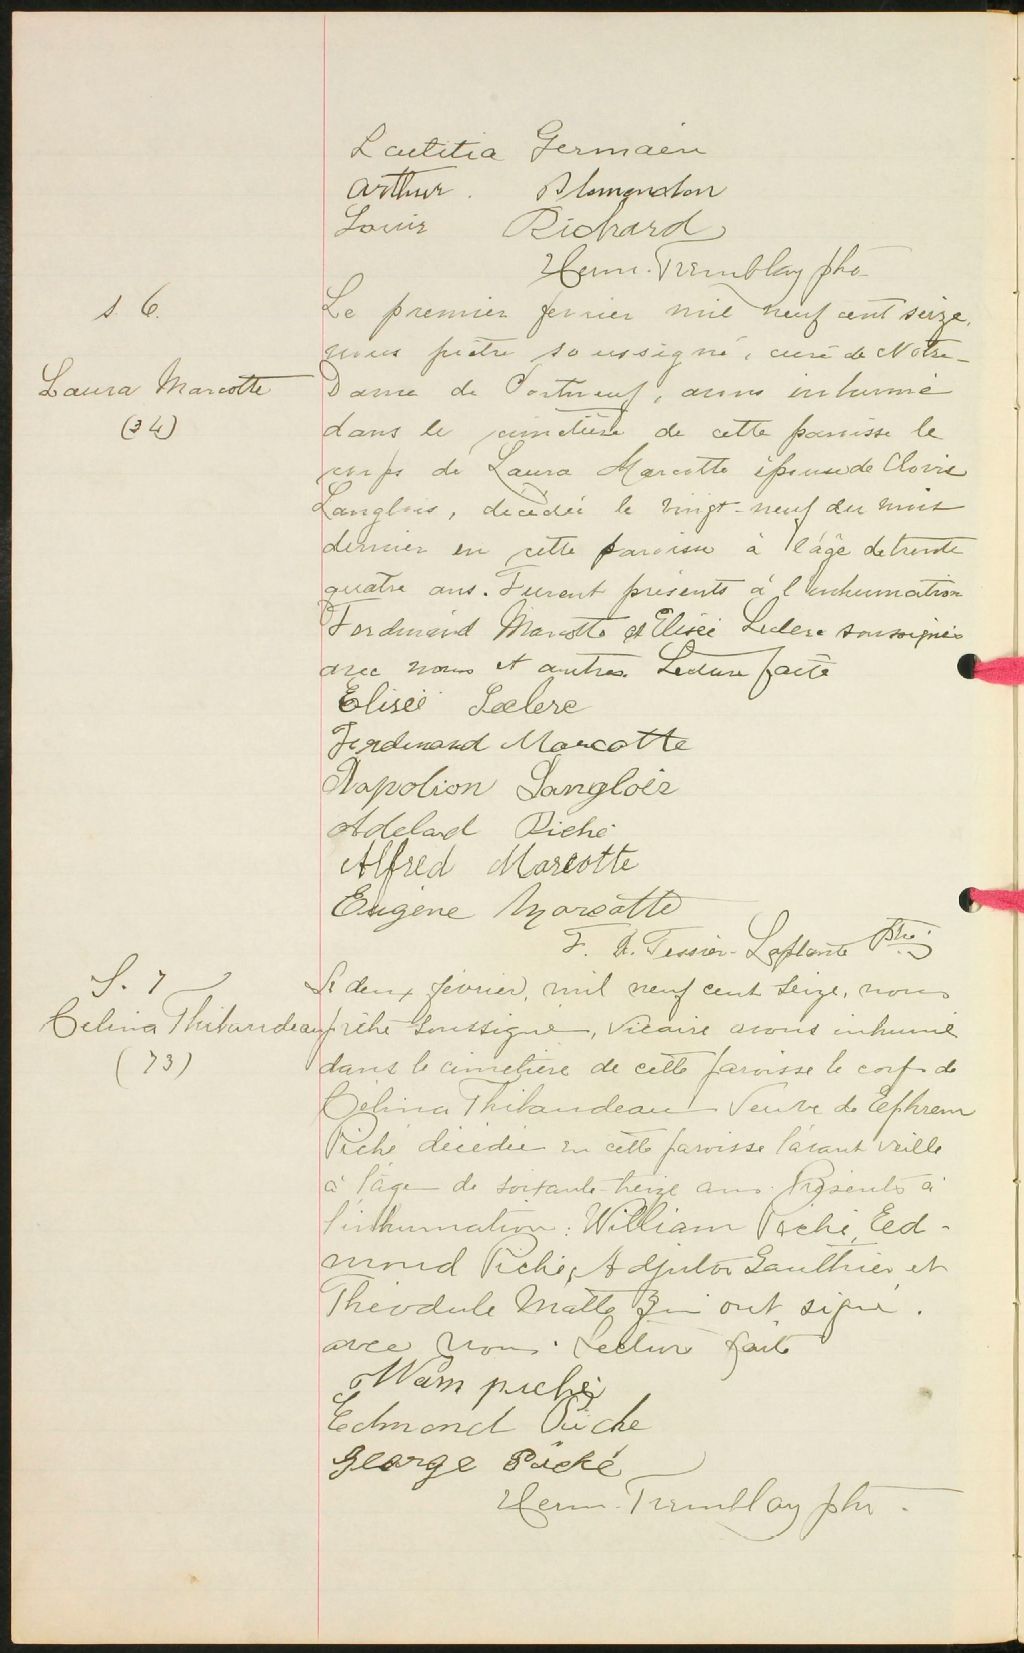 Laetitia Germain
Arthur. Blmondon
Louis Richard
Herm. Tremblay ptre
S. 6.
Laura Marcotte
(34)
Le premier fevrier mil neuf cent seize,
nous prêtre soussigné, curé de Notre-
Dame de Portneuf, avons inhumé
dans le cimetière de cette paroisse le
corps de Laura Marcotte épouse de Clovis
Langlois, décédée le vingt-neuf du mois
dernier en cette paroisse à l'âge de trente
quatre ans. Furent présents à l'inhumation
Ferdinand Marcotte et Elisée Leclerc soussignés
avec nous et autres. Lecture faite
Elisée Leclerc
Ferdinand Marcotte
Napolion Langlois
Adelard Piché
Alfred Marcotte
Eugène Marcotte
F. X. Tessier-Laplante ptre.
S. 7
Celina Thibaudeau
(73)
Le deux février, mil neuf cent seize, nous
prêtre soussigné, vicaire avons inhumé
dans le cimetière de cette paroisse le corps de
Célina Thibaudeau veuve de Eephrem
Piché décédée en cette paroisse l'avant veille
à l'âge de soixante-treize ans. Présents à
l'inhumation: William Piché, Eed-
mond Piché, Adjutor Gauthier et
Théodule Matte qui ont signé.
avec nous. Lecture faite
Wam piché
Edmond Piché
George Piché
Herm. Tremblay ptre.